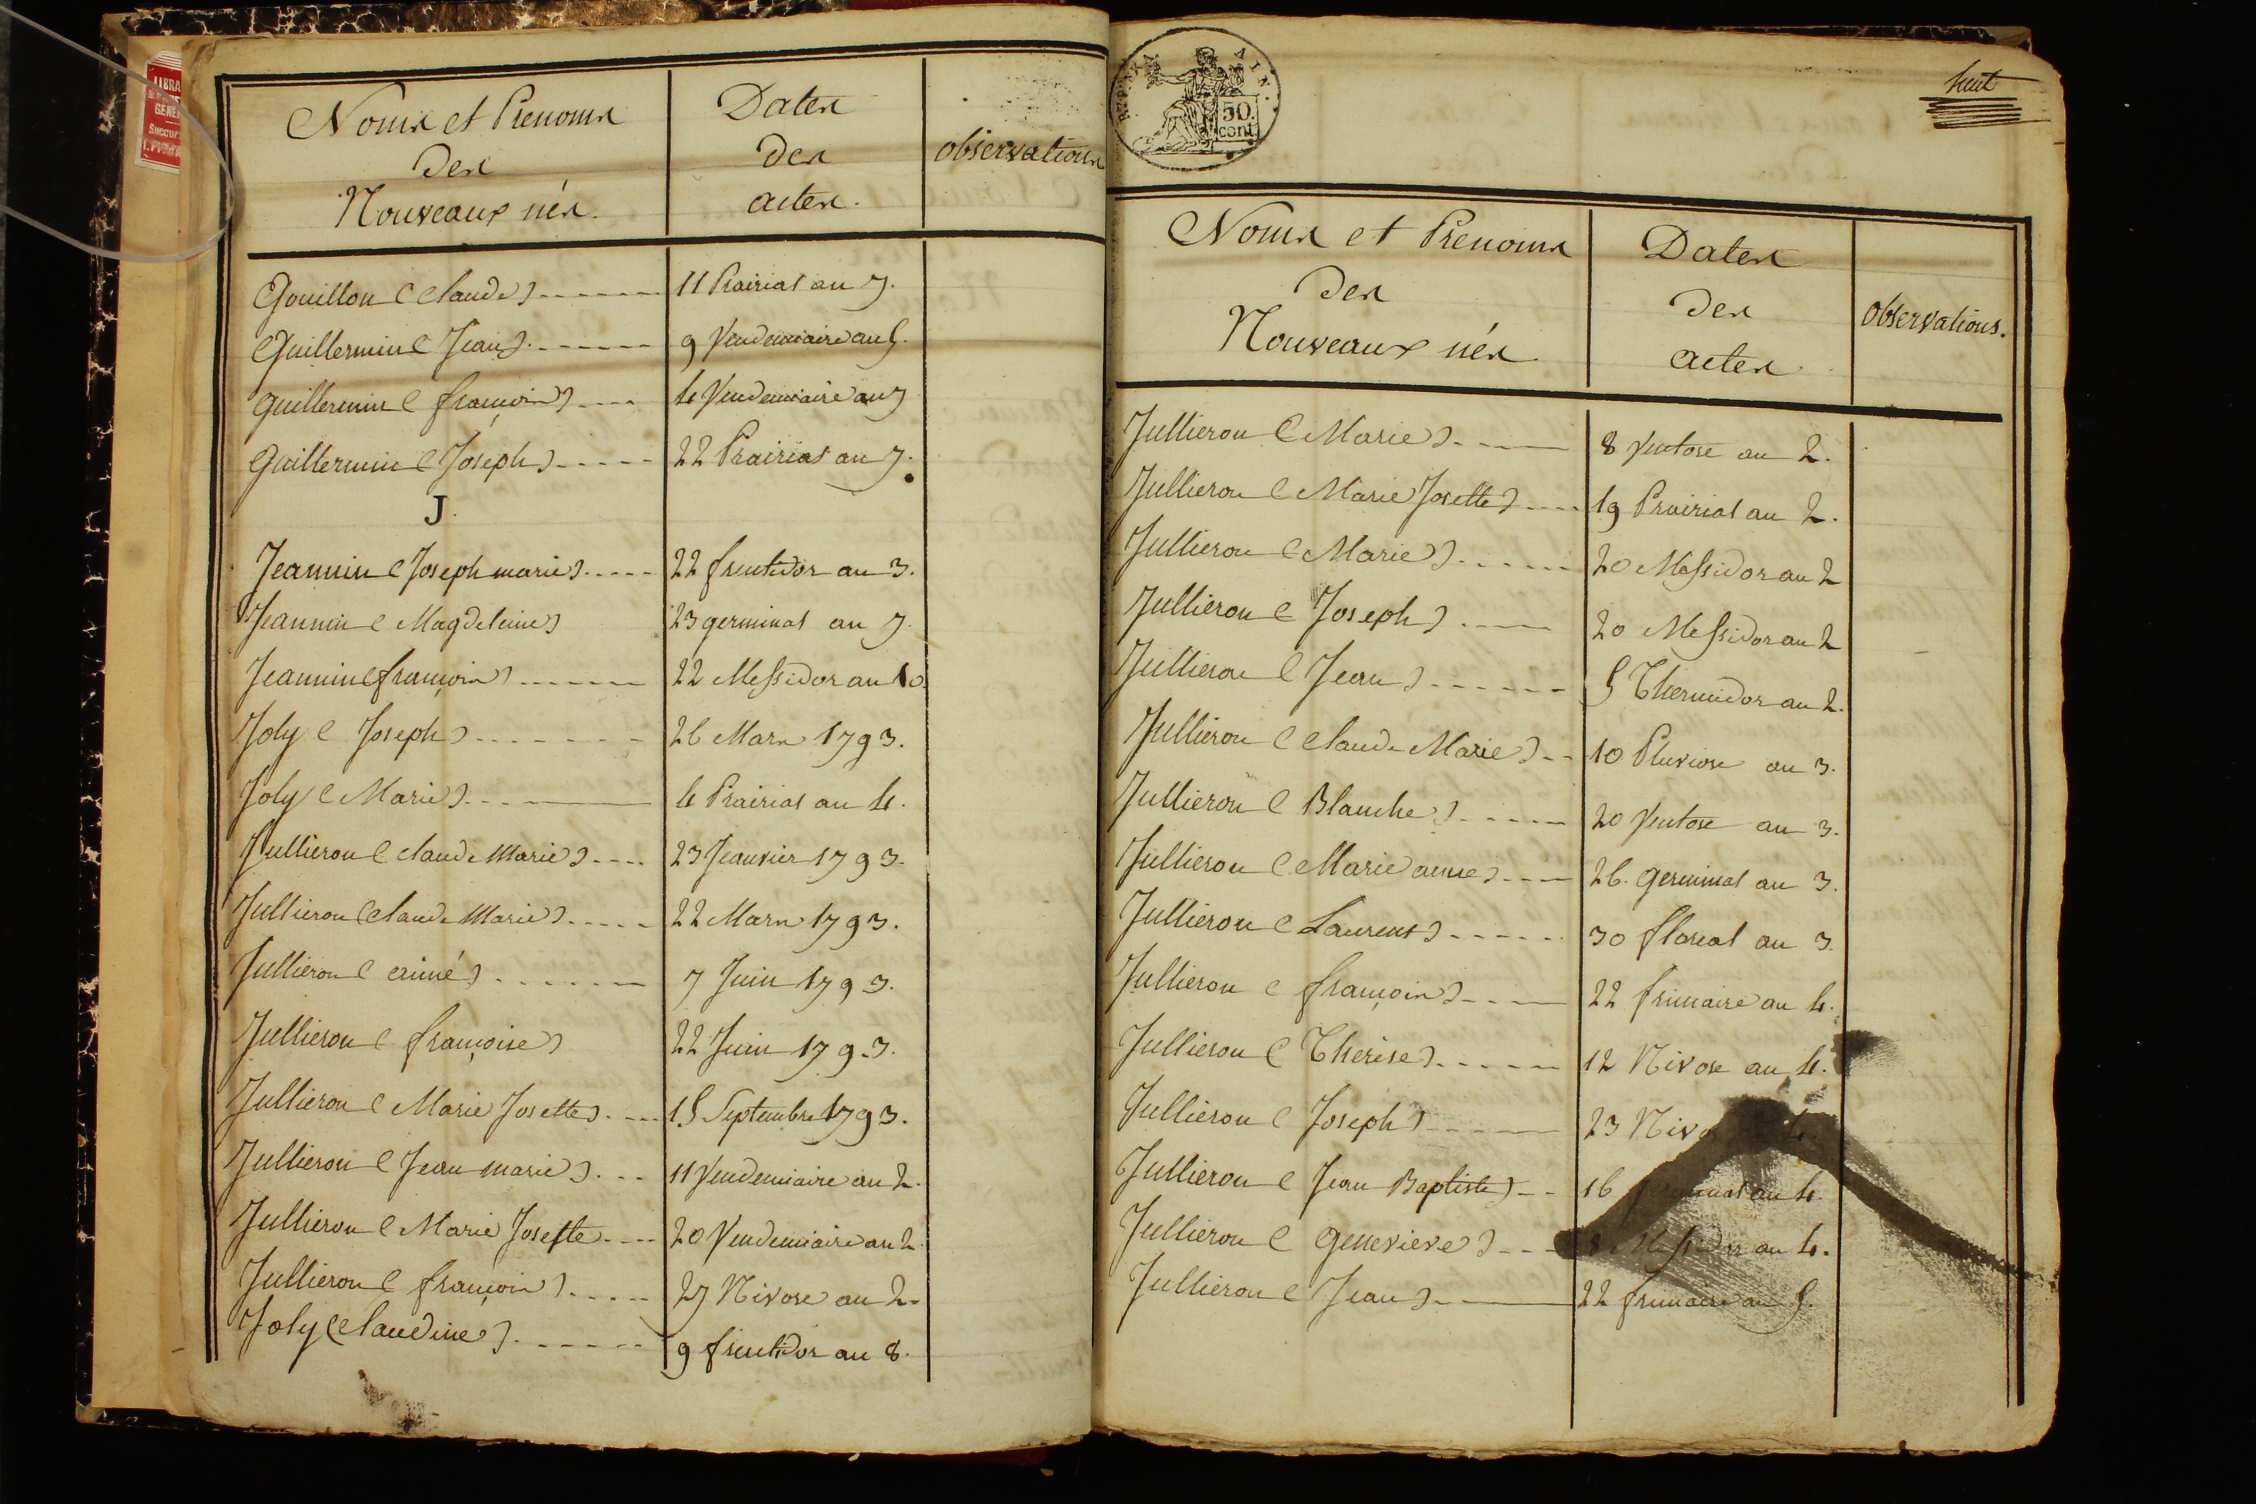 LIBRA
GENE
Succur
Noms et Prenoms
des
Nouveaux nés.
Dates
des
actes.
observations
Gouillon (Claude) 11 Prairial an 7.
Guillermin (Jean) 9 Vendemiaire an 5.
Guillermin (françois) 4 Vendemiaire an 7
Guillermin (Joseph) 22 Prairial an 7.
J.
Jeannin (Joseph marie) 22 fructidor an 3.
Jeannin (Magdeleine) 23 germinal an 7.
Jeannin (françois) 22 Messidor an 10.
Joly (Joseph) 26 Mars 1793.
Joly (Marie) 4 Prairial an 4.
Jullieron (claude Marie) 23 Janvier 1793.
Jullieron (Claude Marie) 22 Mars 1793.
Jullieron (aimé) 7 Juin 1793.
Jullieron (françoise) 22 Juin 1793.
Jullieron (Marie Josette) 15 Septembre 1793.
Jullieron (Jean marie) 11 Vendemiaire an 2.
Jullieron (Marie Josette 20 Vendemiaire an 2.
Jullieron (françois) 27 Nivose an 2.
Joly (Claudine) 9 fructidor an 8.
50.
cent
huit
Noms et Prenoms
des
Nouveaux nés
Dates
des
actes
Observations.
Jullieron (Marie) 8 Ventose an 2.
Jullieron (Marie Josette) 19 Prairial an 2.
Jullieron (Marie) 20 Messidor an 2
Jullieron (Joseph) 20 Messidor an 2
Jullieron (Jean) 5 Thermidor an 2.
Jullieron (Claude Marie) 10 Pluviose an 3.
Jullieron (Blanche) 20 Ventose an 3.
Jullieron (Marie anne) 26. germinal an 3.
Jullieron (Laurent) 30 floreal an 3.
Jullieron (françois) 22 frimaire an 4.
Jullieron (Therese) 12 Nivose an 4.
Jullieron (Joseph) 23 Nivo 4.
Jullieron (Jean Baptiste) 16 germinal an 4.
Jullieron (genevieve) 8 Messidor an 4.
Jullieron (Jean) 22 frimaire an 5.